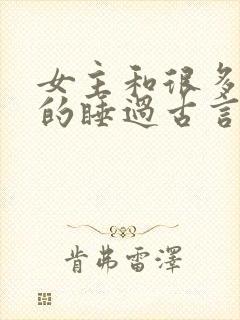 女主和很多
的睡過古言
肯弗雷澤